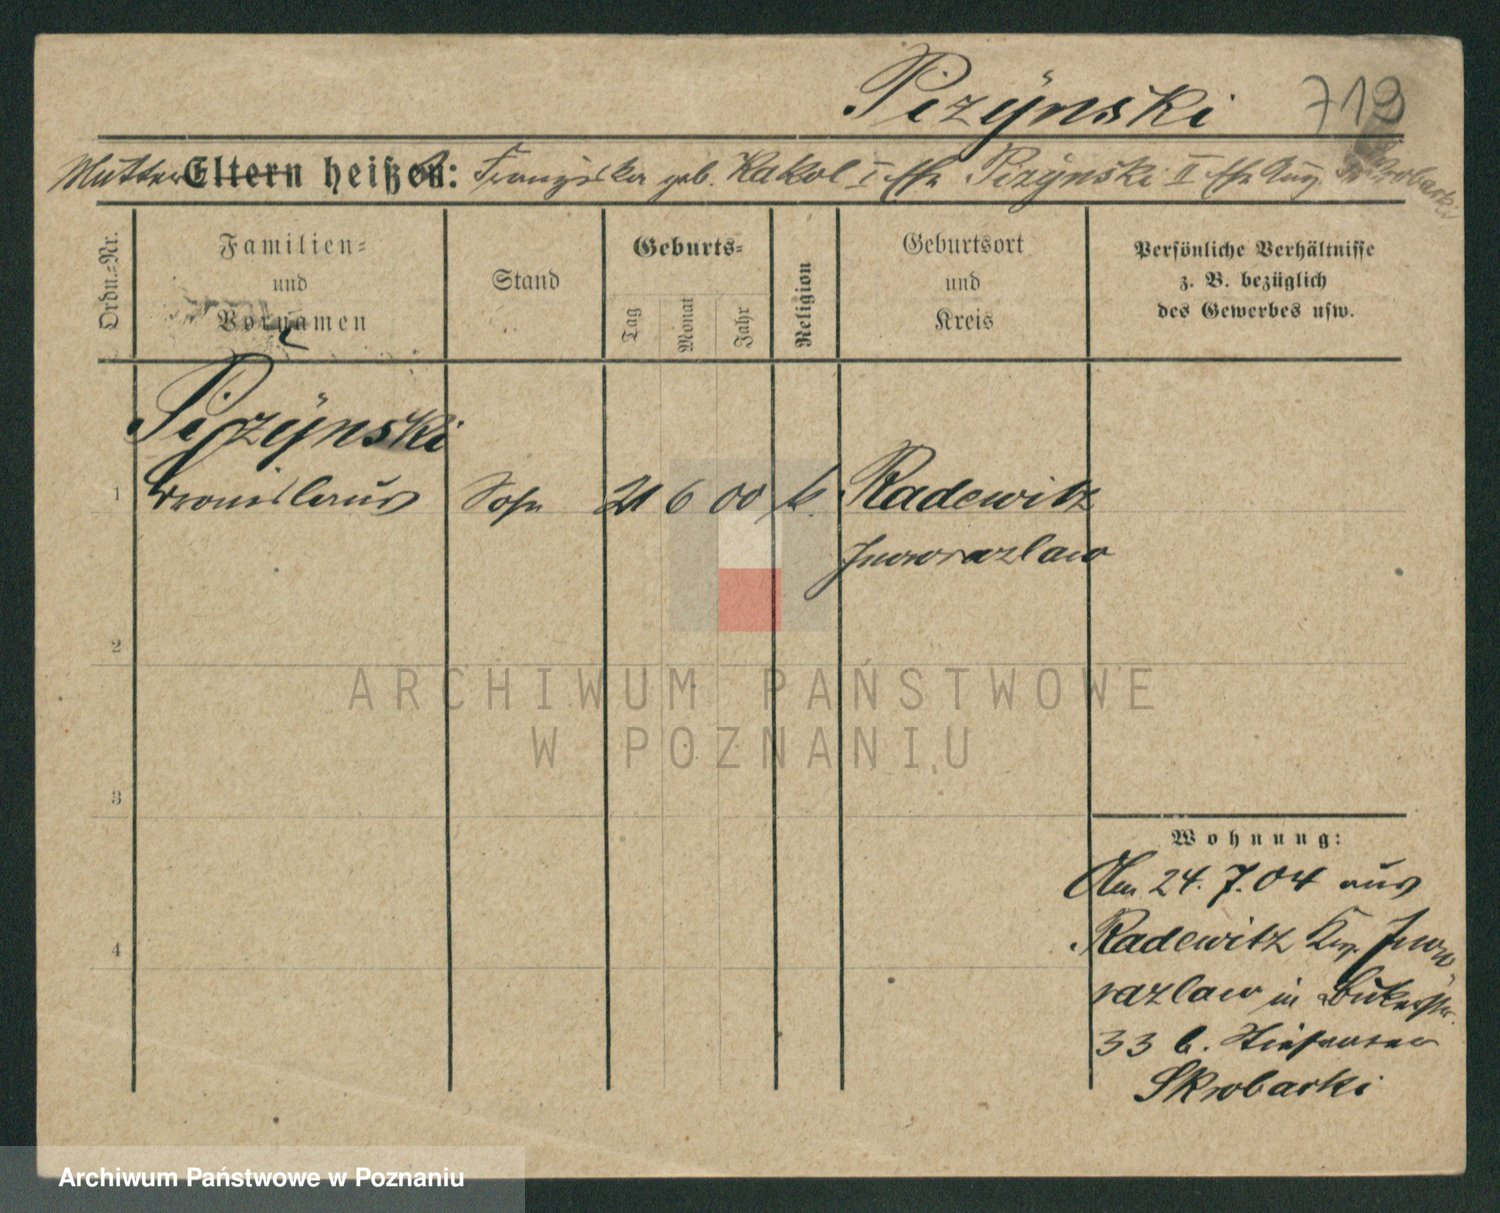 Pizÿnski 719
Mutter Eltern heißen: Franziska geb. Kakol I Ehe Pizÿnski II Ehe Aug. Skrobacki
Ordn.=Nr.
Familien=
und
Vornamen
Stand
Geburts=
Tag
Monat
Jahr
Religion
Geburtsort
und
Kreis
Persönliche Verhältnisse
z. B. bezüglich
des Gewerbes usw.
Pizÿnski
1 Bronislaus Sohn 21 6 00 k. Radewitz
Inowrazlaw
2
3
4
Wohnung:
Am 24. 7. 04 aus
Radewitz Inow
razlaw in Bukerstr.
33 b. Stiefvater
Skrobacki
ARCHIWUM PAŃSTWOWE
W POZNANIU
Archiwum Państwowe w Poznaniu